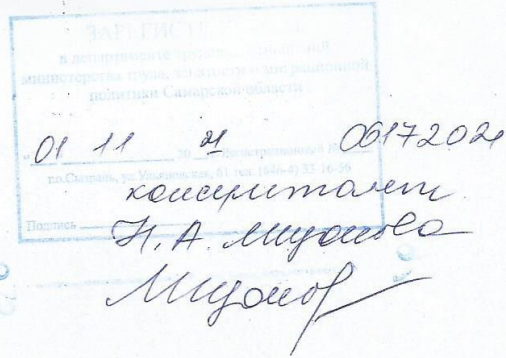 ЗАРЕГИСТ
в департаменте трудовых отношений
министерства труда, занятости и миграционной
политики Самарской области
"01" 11 20 21 Регистрационный № 06172021
го.Сызрань, ул. Ульяновская, 61 тел. (846-4) 33-16-56
консультант
Подпись
Н.А.